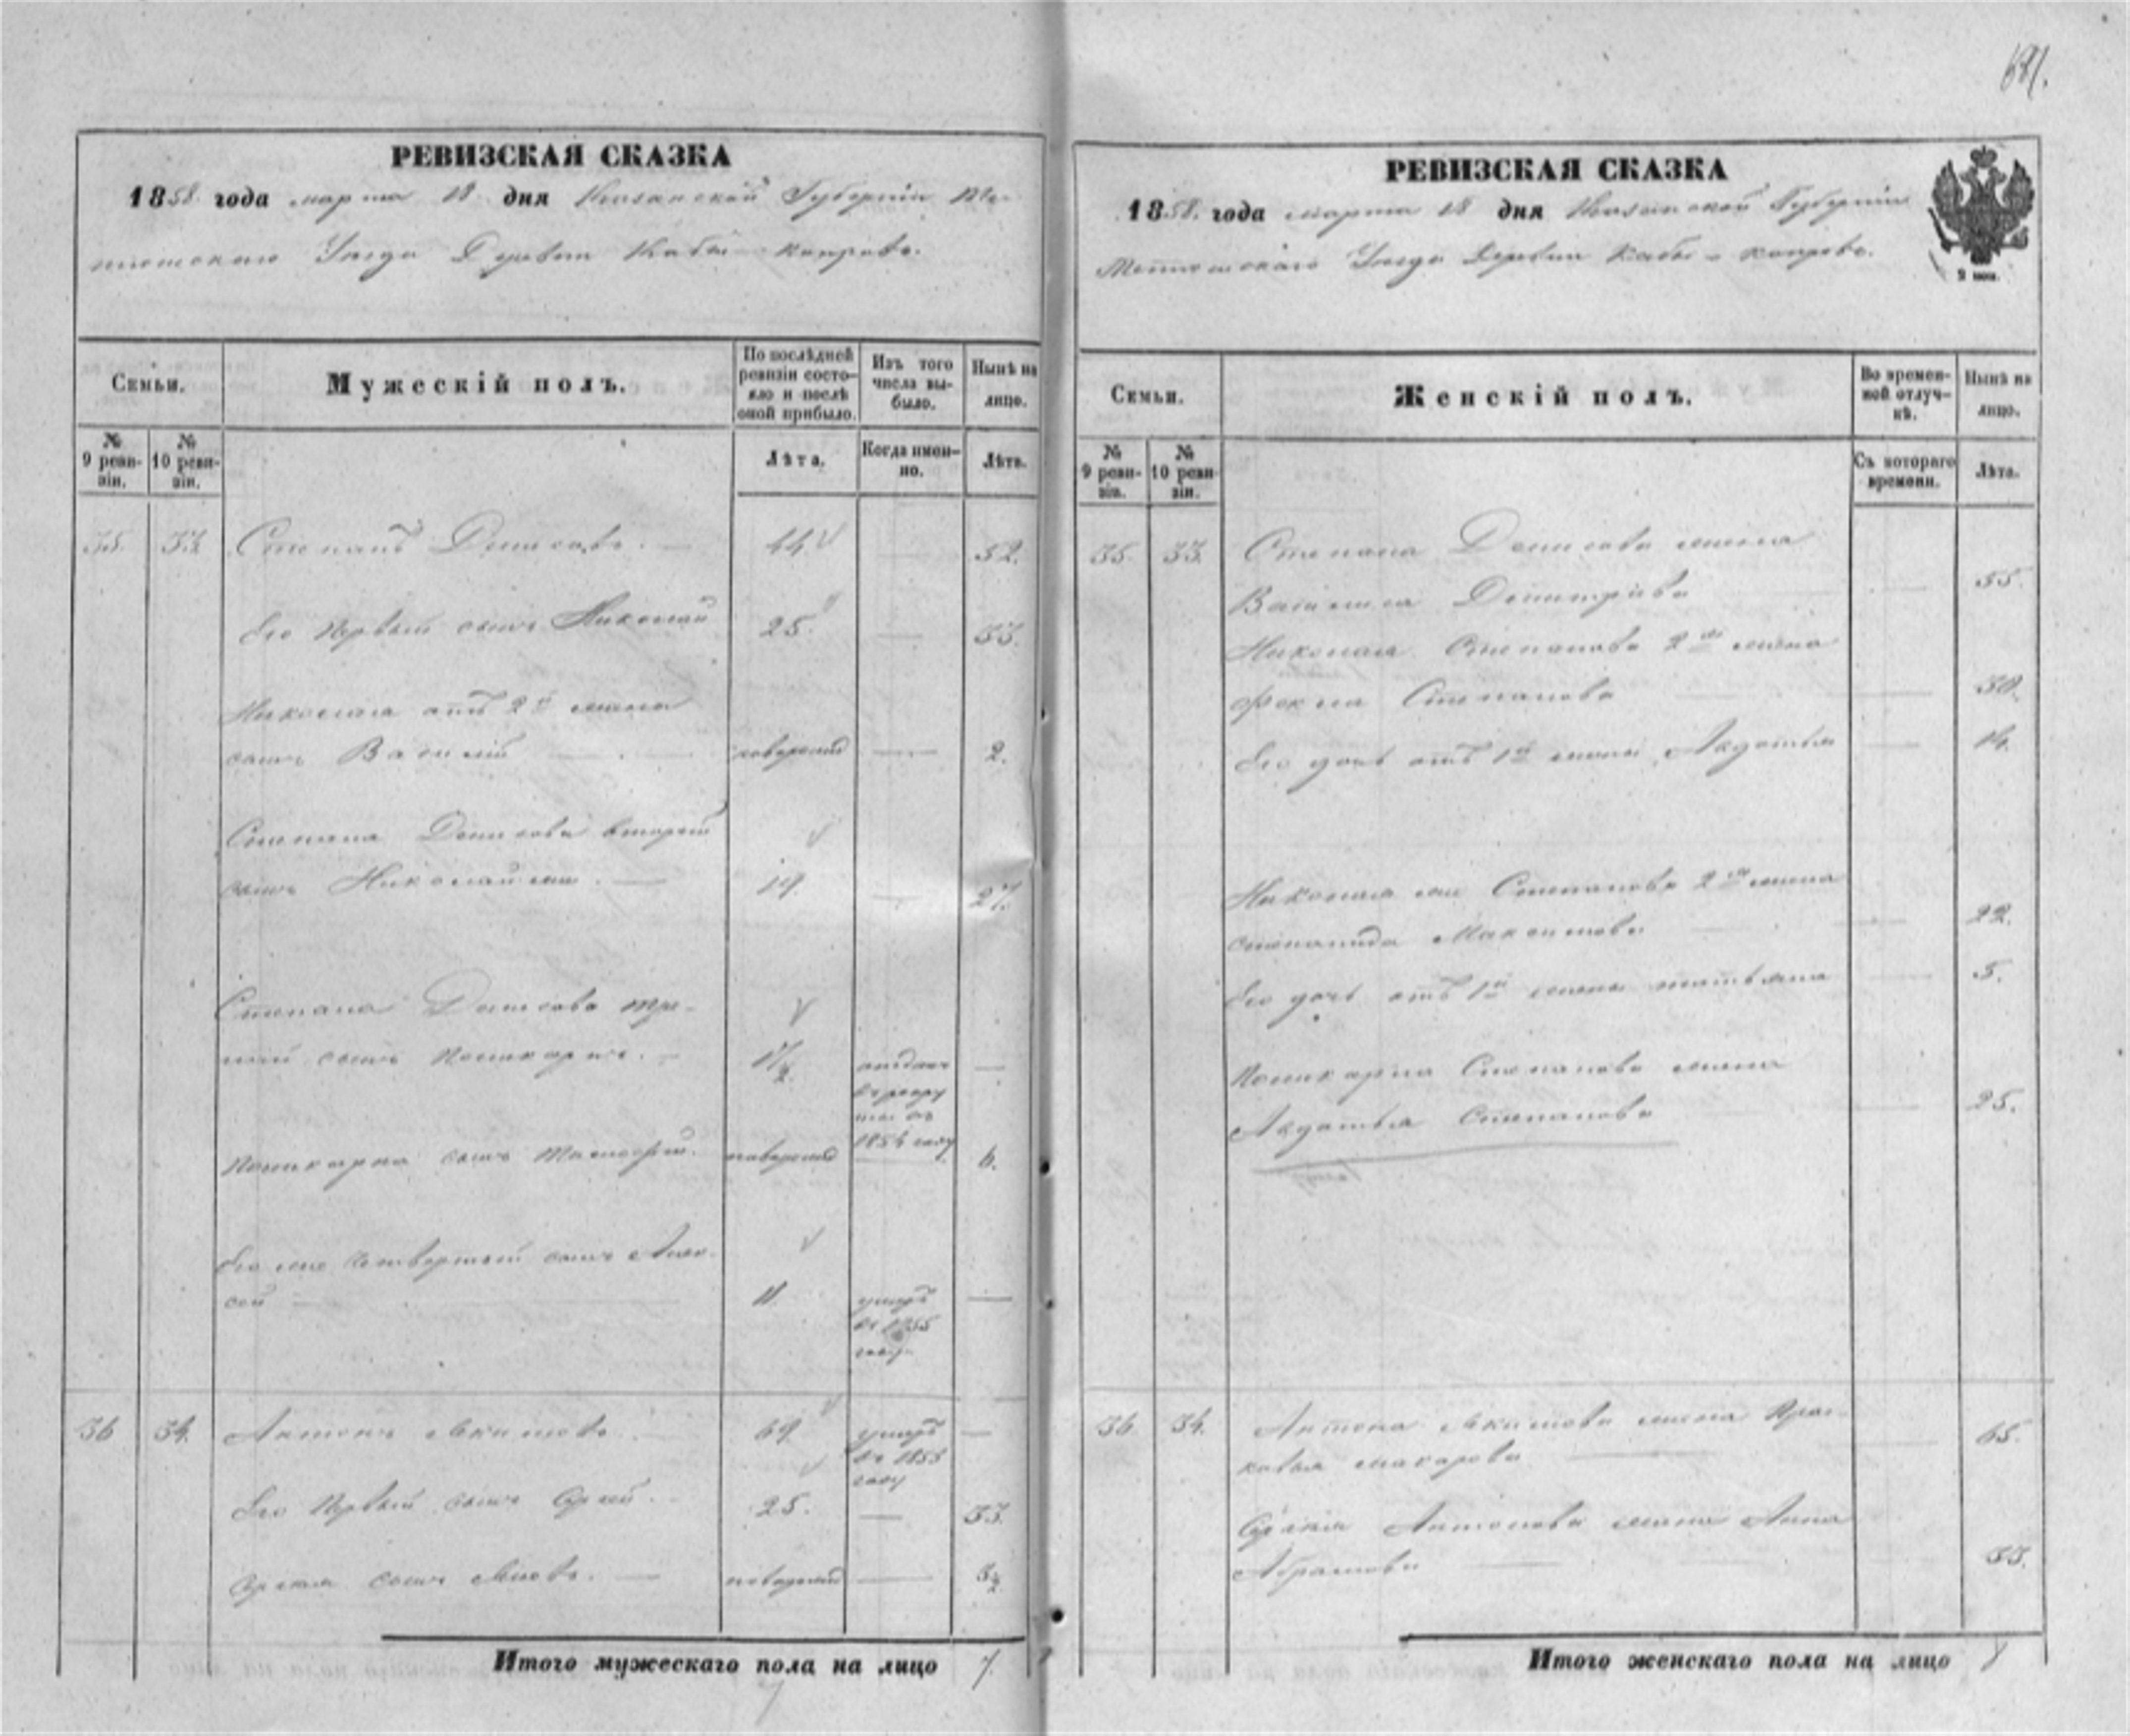 681.
РЕВИЗСКАЯ СКАЗКА
1858 года марта 18 дня Казанской Губерніи
Уезда Деревни Кабы-Копрово.
Семьи.
Мужескій полъ.
По послѣдней ревизіи состояло и послѣ оной прибыло.
Изъ того числа выбыло.
Нынѣ на лицо.
№ 9 ревизіи.
№ 10 ревизіи.
Лѣта.
Когда именно.
Лѣта.
35. 33. Степанъ Денисовъ. — 44 — 52.
Его первый сынъ Николай 25. — 33.
Николая отъ 2й жены
сынъ Василій — — 2.
Степана Денисова второй
сынъ Николай же. — 19. — 27.
Степана Денисова тре-
тій сынъ Поликарпъ. — 17/2 отданъ —
въ рекру
ты въ
1854 году
Поликарпа сынъ Тимофей. 6.
Его же четвертый сынъ Алек-
сей — 11. умеръ —
въ 1855
году
36 34. Антонъ Акимовъ. — 69 умеръ —
въ 1855
году
Его первый сынъ Сргей. 25. — 33.
Сргея сынъ — — 3/2
Итого мужескаго пола на лицо 7.
РЕВИЗСКАЯ СКАЗКА
1858. года марта 18 дня Казанской Губерніи
Уезда Деревни Кабы-Копрово.
2 коп.
Семьи.
Женскій полъ.
Во временной отлучкѣ.
Нынѣ на лицо.
№ 9 ревизіи.
№ 10 ревизіи.
Съ котораго времени.
Лѣта.
35. 33. Степана Денисова жена
Василиса Дмитріева — 55.
Николая Степанова 2я жена
Фекла Степанова — 30.
Его дочь отъ 1й жены Авдотья — 14.
Николая же Степанова 2я жена
Степанида Максимова — 22.
Его дочь отъ 1й жены татьяна — 5.
Поликарпа Степанова жена
Авдотья Степанова — 25.
36. 34. Антона Акимова жена Прас-
ковья макарова — 65.
Сргея Антонова жена Анна
Абрамова — 33.
Итого женскаго пола на лицо